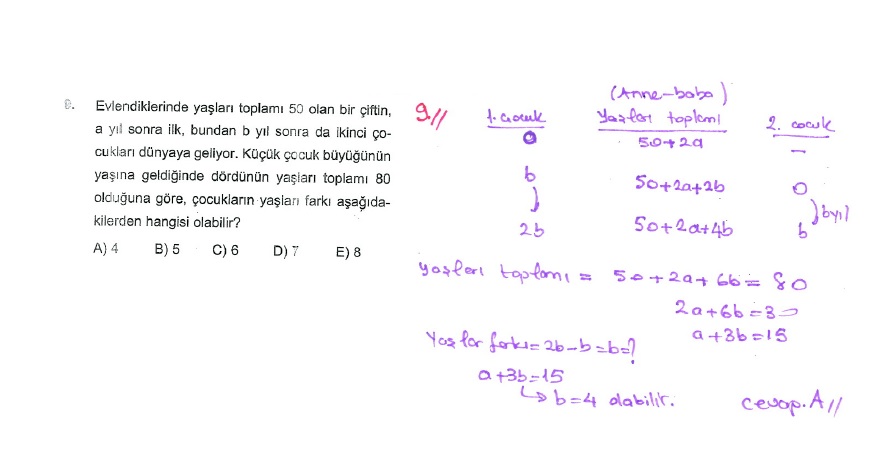 9. Evlendiklerinde yaşları toplamı 50 olan bir çiftin,
a yıl sonra ilk, bundan b yıl sonra da ikinci ço-
cukları dünyaya geliyor. Küçük çocuk büyüğünün
yaşına geldiğinde dördünün yaşları toplamı 80
olduğuna göre, çocukların yaşları farkı aşağıda-
kilerden hangisi olabilir?
A) 4 B) 5 C) 6 D) 7 E) 8
9//
(Anne-baba)
1. çocuk Yaşları toplamı 2. çocuk
0 50+2a —
b 50+2a+2b 0
b yıl
2b 50+2a+4b b
yaşları toplamı = 50+2a+6b = 80
2a+6b=30
a+3b=15
Yaşlar farkı=2b-b=b=?
a+3b=15
↳ b=4 olabilir.
cevap.A//